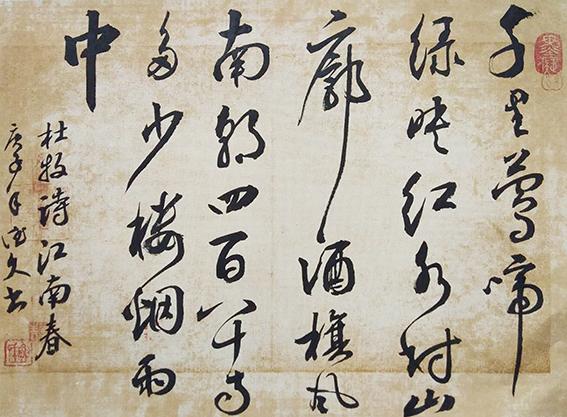 千里莺啼
绿映红水村山
廓酒旗风
南朝四百八十寺
多少楼烟雨
中
杜牧诗江南春
庚子年文书